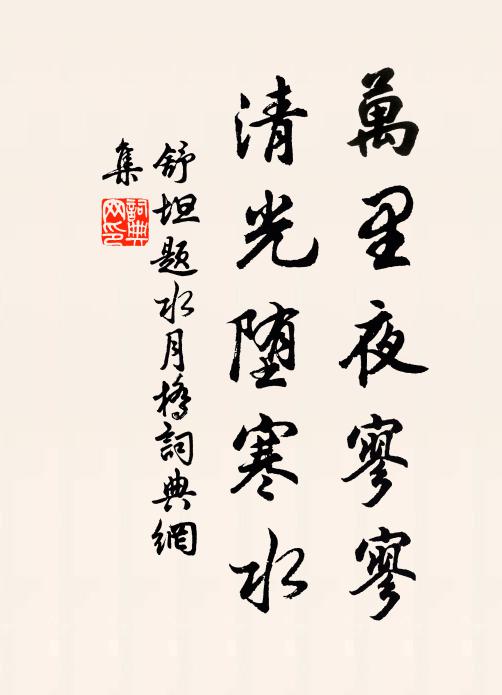 萬里夜寥寥
清光堕寒水
舒坦题水月橋詞典網
集
詞典
网印